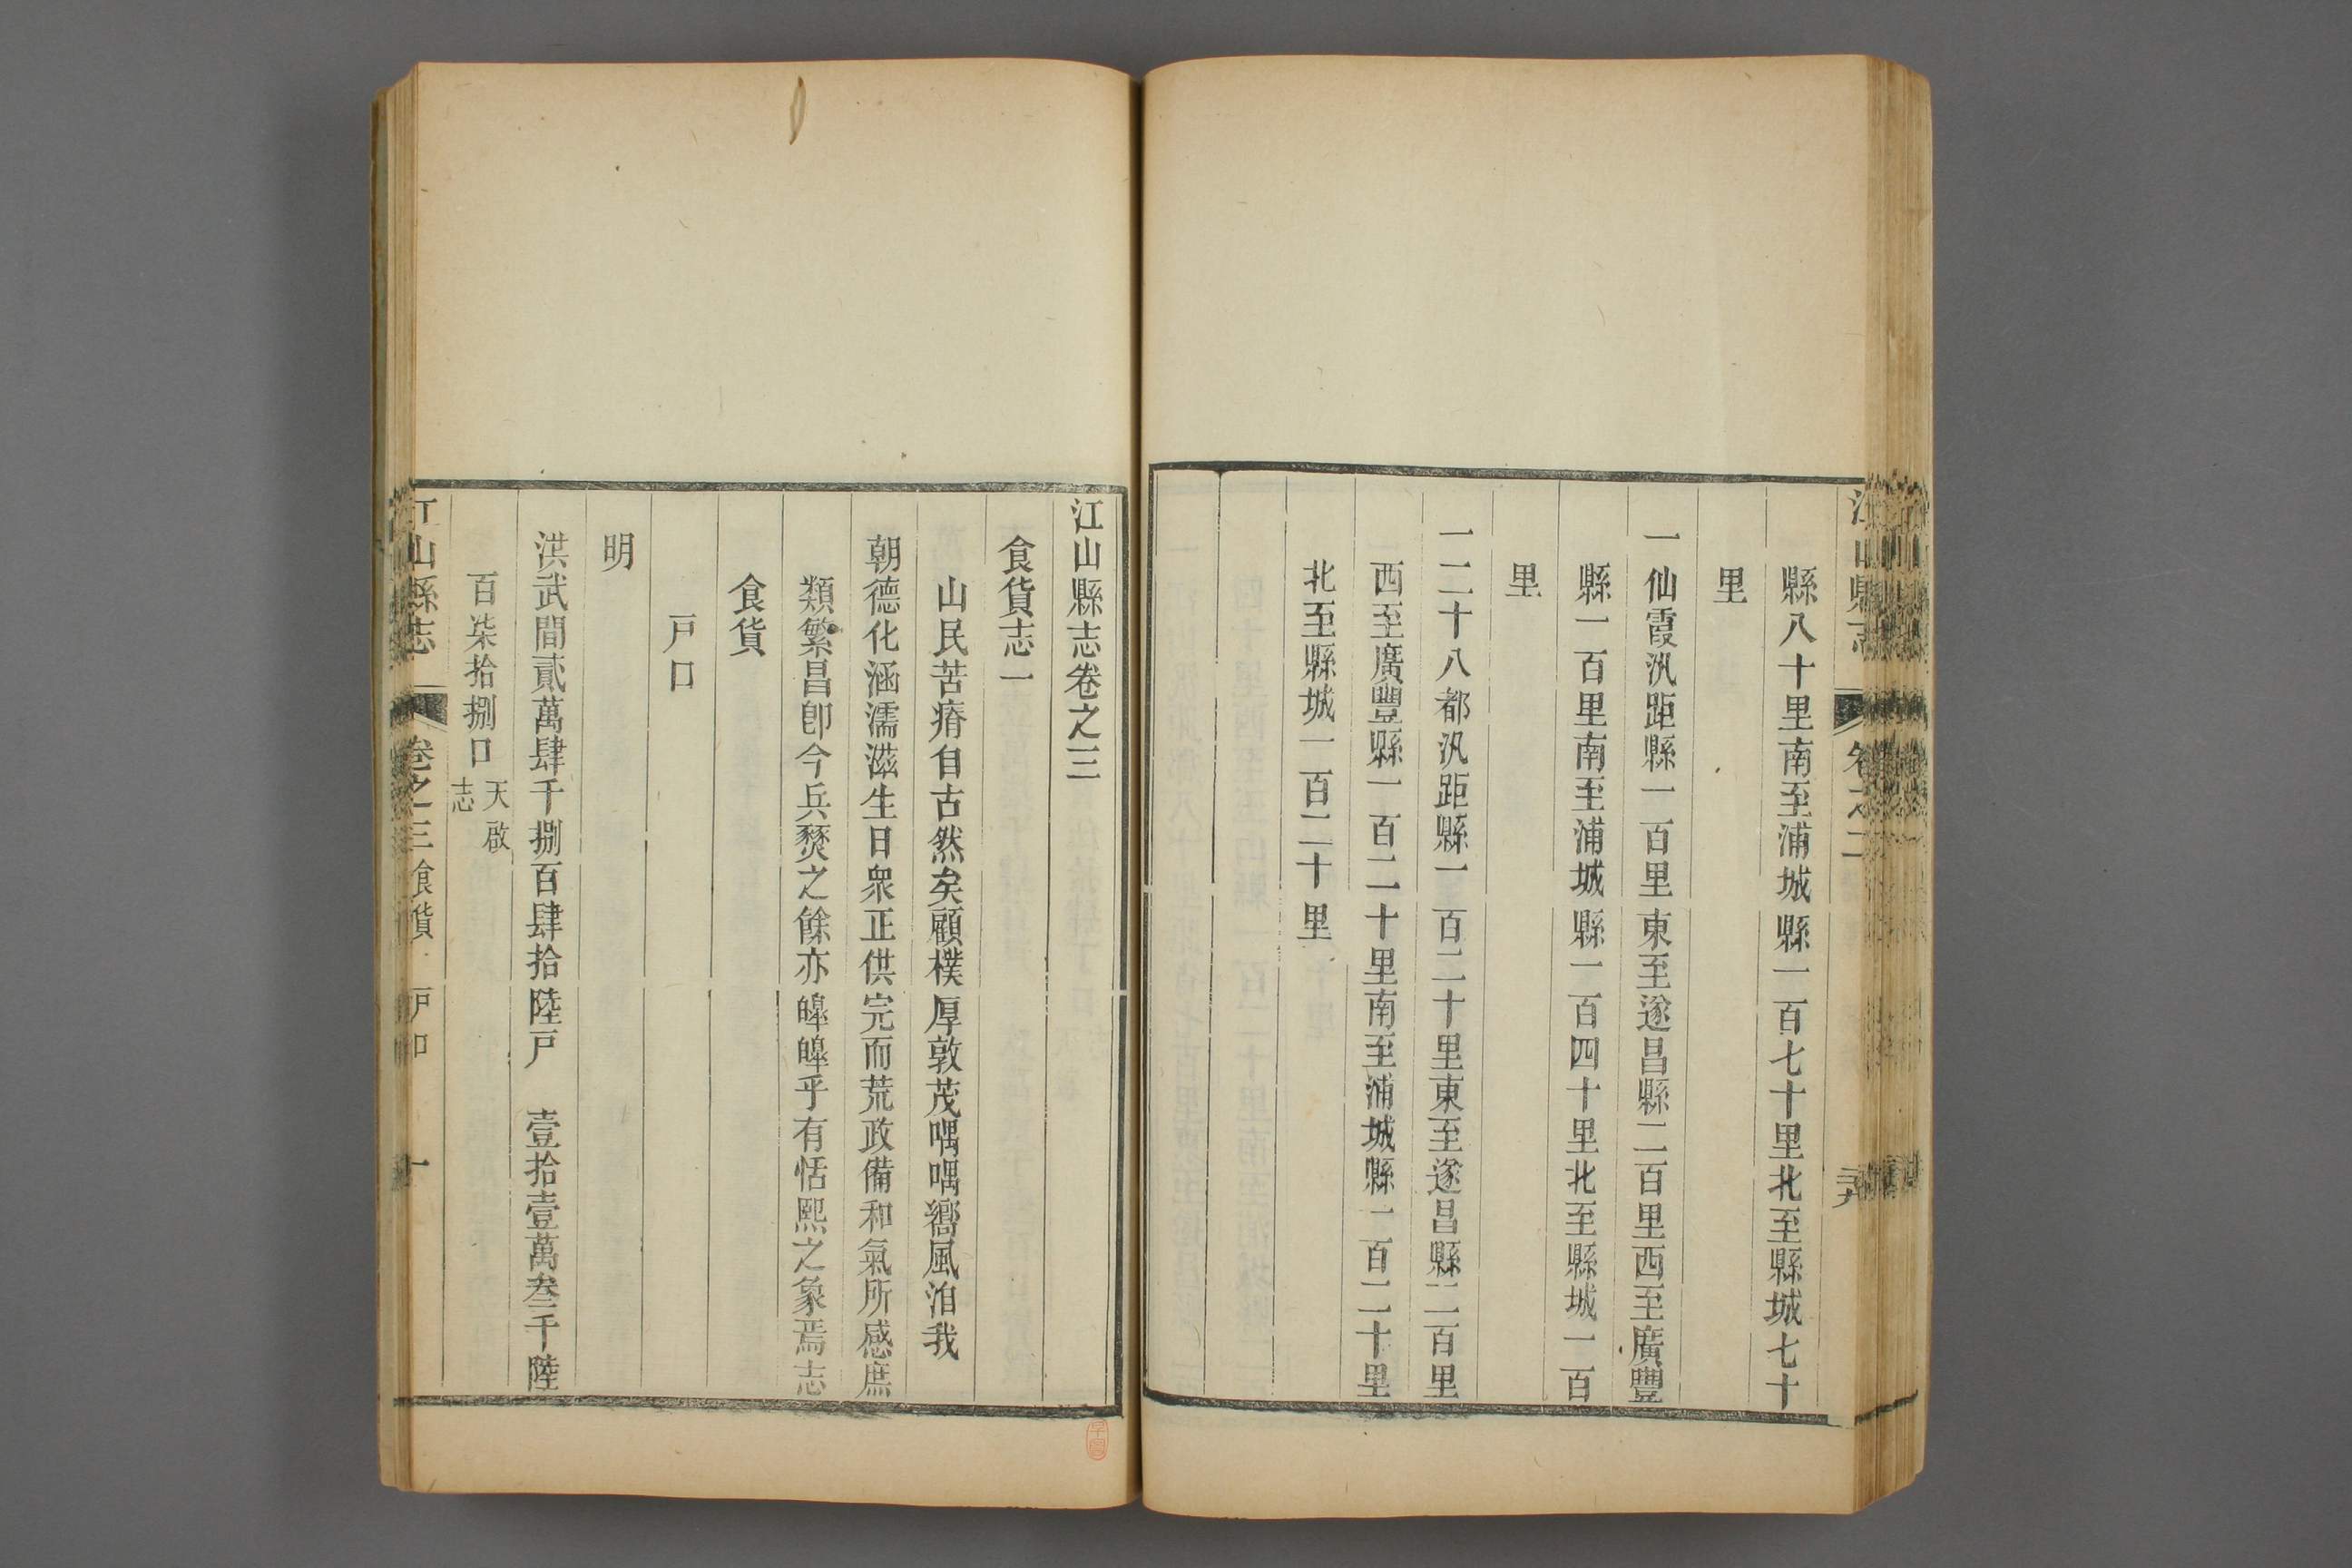 江山縣志 卷之二
縣八十里南至浦城縣一百七十里北至縣城七十
里
一仙霞汛距縣一百里東至遂昌縣二百里西至廣豐
縣一百里南至浦城縣一百四十里北至縣城一百
里
一二十八都汛距縣一百二十里東至遂昌縣二百里
西至廣豐縣一百二十里南至浦城縣一百二十里
北至縣城一百二十里
江山縣志卷之三
食貨志一
山民苦瘠自古然矣顧樸厚敦茂喁喁嚮風洎我
朝德化涵濡滋生日衆正供完而荒政備和氣所感庶
類繁昌卽今兵燹之餘亦皞皞乎有恬熙之象焉志
食貨
戸口
明
洪武間貳萬肆千捌百肆拾陸戸 壹拾壹萬叁千陸
百柒拾捌口 天啟
志
江山縣志 卷之三 食貨 戸口 一